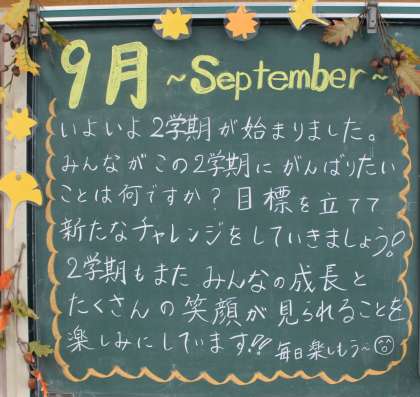 9月 ~September~
いよいよ2学期が始まりました。
みんながこの2学期にがんばりたい
ことは何ですか?目標を立てて
新たなチャレンジをしていきましょう!
2学期もまたみんなの成長と
たくさんの笑顔が見られることを
楽しみにしています!! 毎日楽しもう~